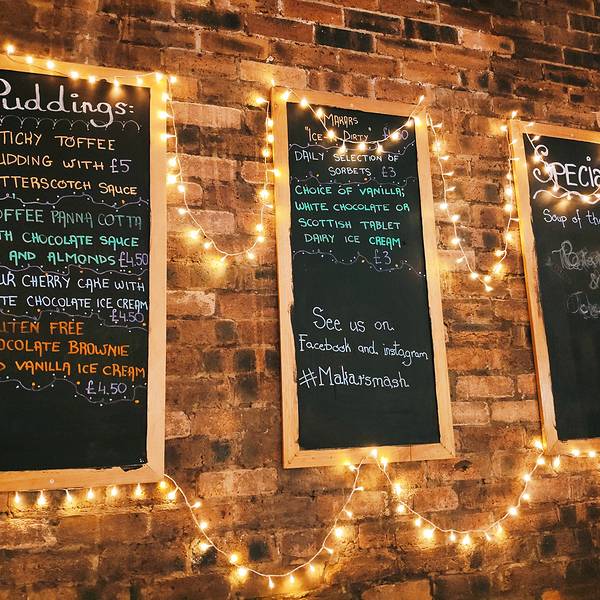 Puddings:
TICHY TOFFEE
UDDING WITH £5
TTERSCOTCH SAUCE
OFFEE PANNA COTTA
TH CHOCOLATE SAUCE
AND ALMONDS £4.50
UR CHERRY CAKE WITH
TE CHOCOLATE ICE CREAM
£4.50
UTEN FREE
OCOLATE BROWNIE
D VANILLA ICE CREAM
£4.50
MAKARS
"ICE DIRTY"
DAILY SELECTION OF
SORBETS £3
CHOICE OF VANILLA;
WHITE CHOCOLATE OR
SCOTTISH TABLET
DAIRY ICE CREAM
£3
See us on
Facebook and instagram
#Makarsmash
Specia
Soup of the